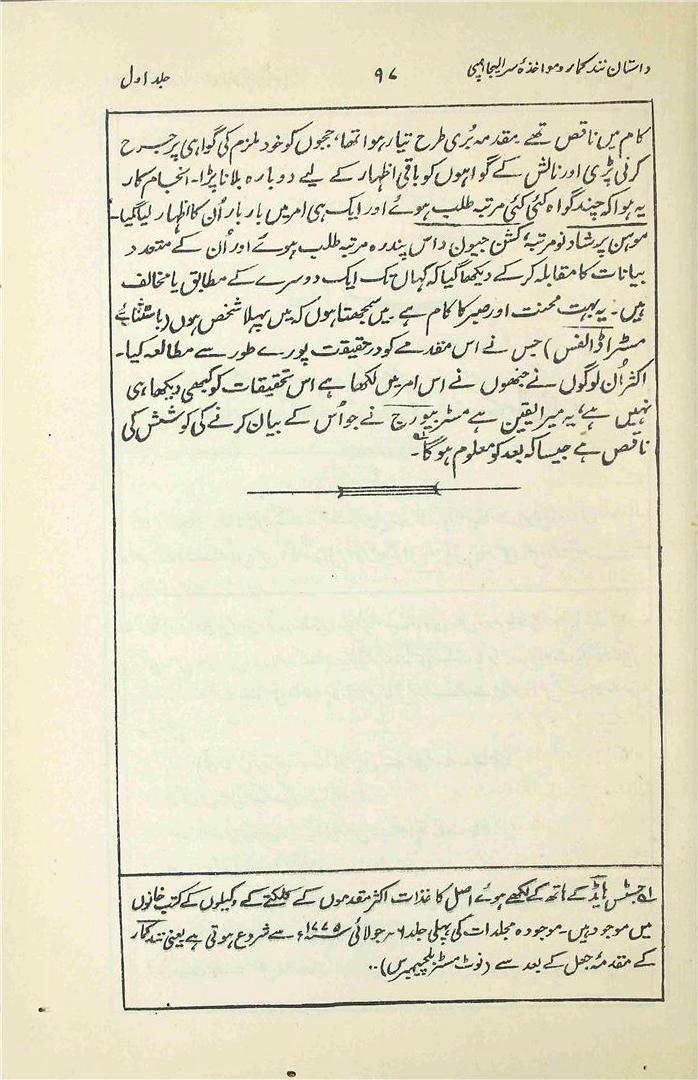 داستان نند کمار و مواخذۂ سر الیجا امپی
۹۷
جلد اول
کام میں ناقص تھے مقدمہ بُری طرح تیار ہوا تھا، ججوں کو خود ملزم کی گواہی پر جرح
کرنی پڑی اور نالش کے گواہوں کو باقی اظہار کے لیے دوبارہ بلانا پڑا۔ انجام کار
یہ ہوا کہ چند گواہ کئی کئی مرتبہ طلب ہوئے اور ایک ہی امر میں بار بار اُن کا اظہار لیا گیا۔
موہن پرشاد نو مرتبہ، کشن جیون داس پندرہ مرتبہ طلب ہوئے اور اُن کے متعدد
بیانات کا مقابلہ کر کے دیکھا گیا کہ کہاں تک ایک دوسرے کے مطابق یا مخالف
ہیں۔ یہ بہت محنت اور صبر کا کام ہے۔ میں سمجھتا ہوں کہ میں پہلا شخص ہوں (باستثنائے
مسٹر اڈالفس) جس نے اس مقدمے کو در حقیقت پورے طور سے مطالعہ کیا۔
اکثر اُن لوگوں نے جنھوں نے اس امر میں لکھا ہے اس تحقیقات کو کبھی دیکھا ہی
نہیں ہے، یہ میرا یقین ہے مسٹر بیورج نے جو اُس کے بیان کرنے کی کوشش کی
ناقص ہے جیسا کہ بعد کو معلوم ہو گا۔
لے جسٹس ہائڈ کے ہاتھ کے لکھے ہوئے اصل کاغذات اکثر مقدموں کے کلکتے کے وکیلوں کے کتب خانوں
میں موجود ہیں۔ موجودہ مجلدات کی پہلی جلد ۶۔ جولائی سنہ ۱۷۷۵ء سے شروع ہوتی ہے یعنی نند کمار
کے مقدمۂ جعل کے بعد سے (نوٹ مسٹر بلچیمبرس)..